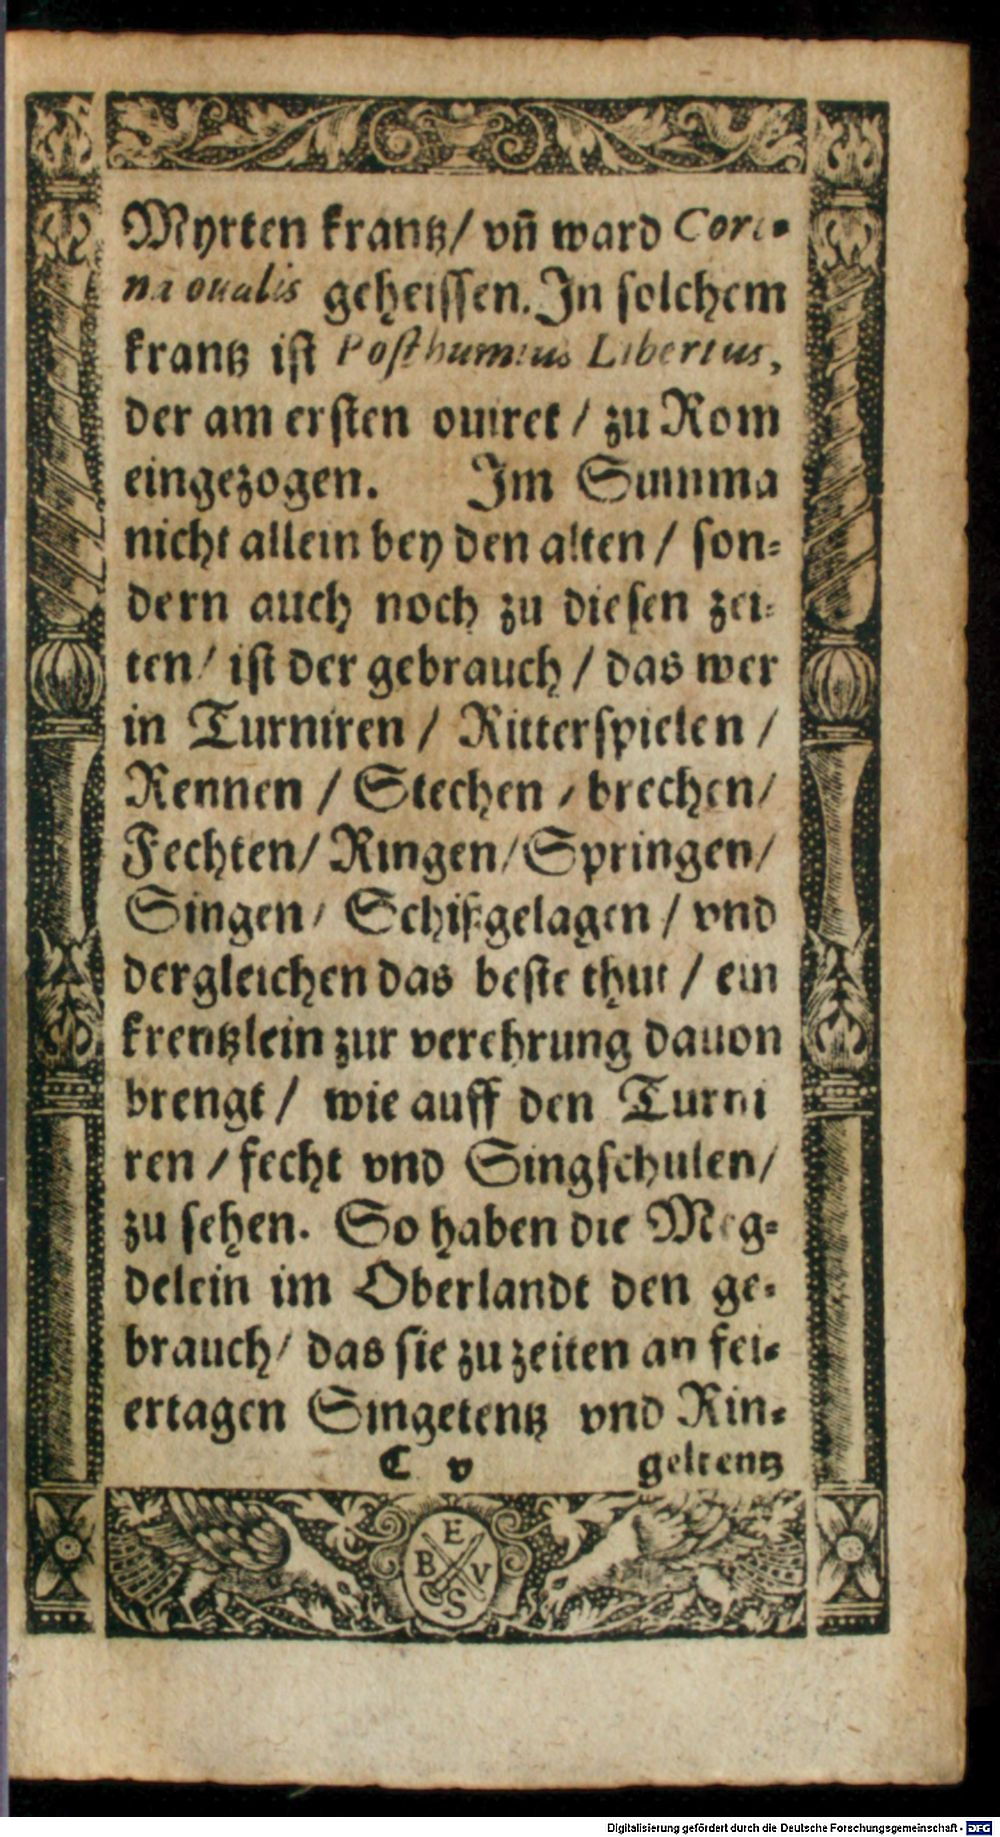 Myrten krantz/ vñ ward Coro-
na oualis geheissen. In solchem
krantz ist Posthumius Libertus,
der am ersten ouiret / zu Rom
eingezogen. Im Summa
nicht allein bey den alten / son-
dern auch noch zu diesen zei-
ten/ ist der gebrauch / das wer
in Turniren / Ritterspielen /
Rennen / Stechen / brechen/
Fechten/ Ringen/ Springen/
Singen/ Schißgelagen / vnd
dergleichen das beste thut / ein
krentzlein zur verehrung dauon
brengt / wie auff den Turni
ren / fecht vnd Singschulen/
zu sehen. So haben die Meg-
delein im Oberlandt den ge-
brauch/ das sie zu zeiten an fei-
ertagen Singetentz vnd Rin-
C v geltentz
E
B V
S
Digitalisierung gefördert durch die Deutsche Forschungsgemeinschaft - DFG